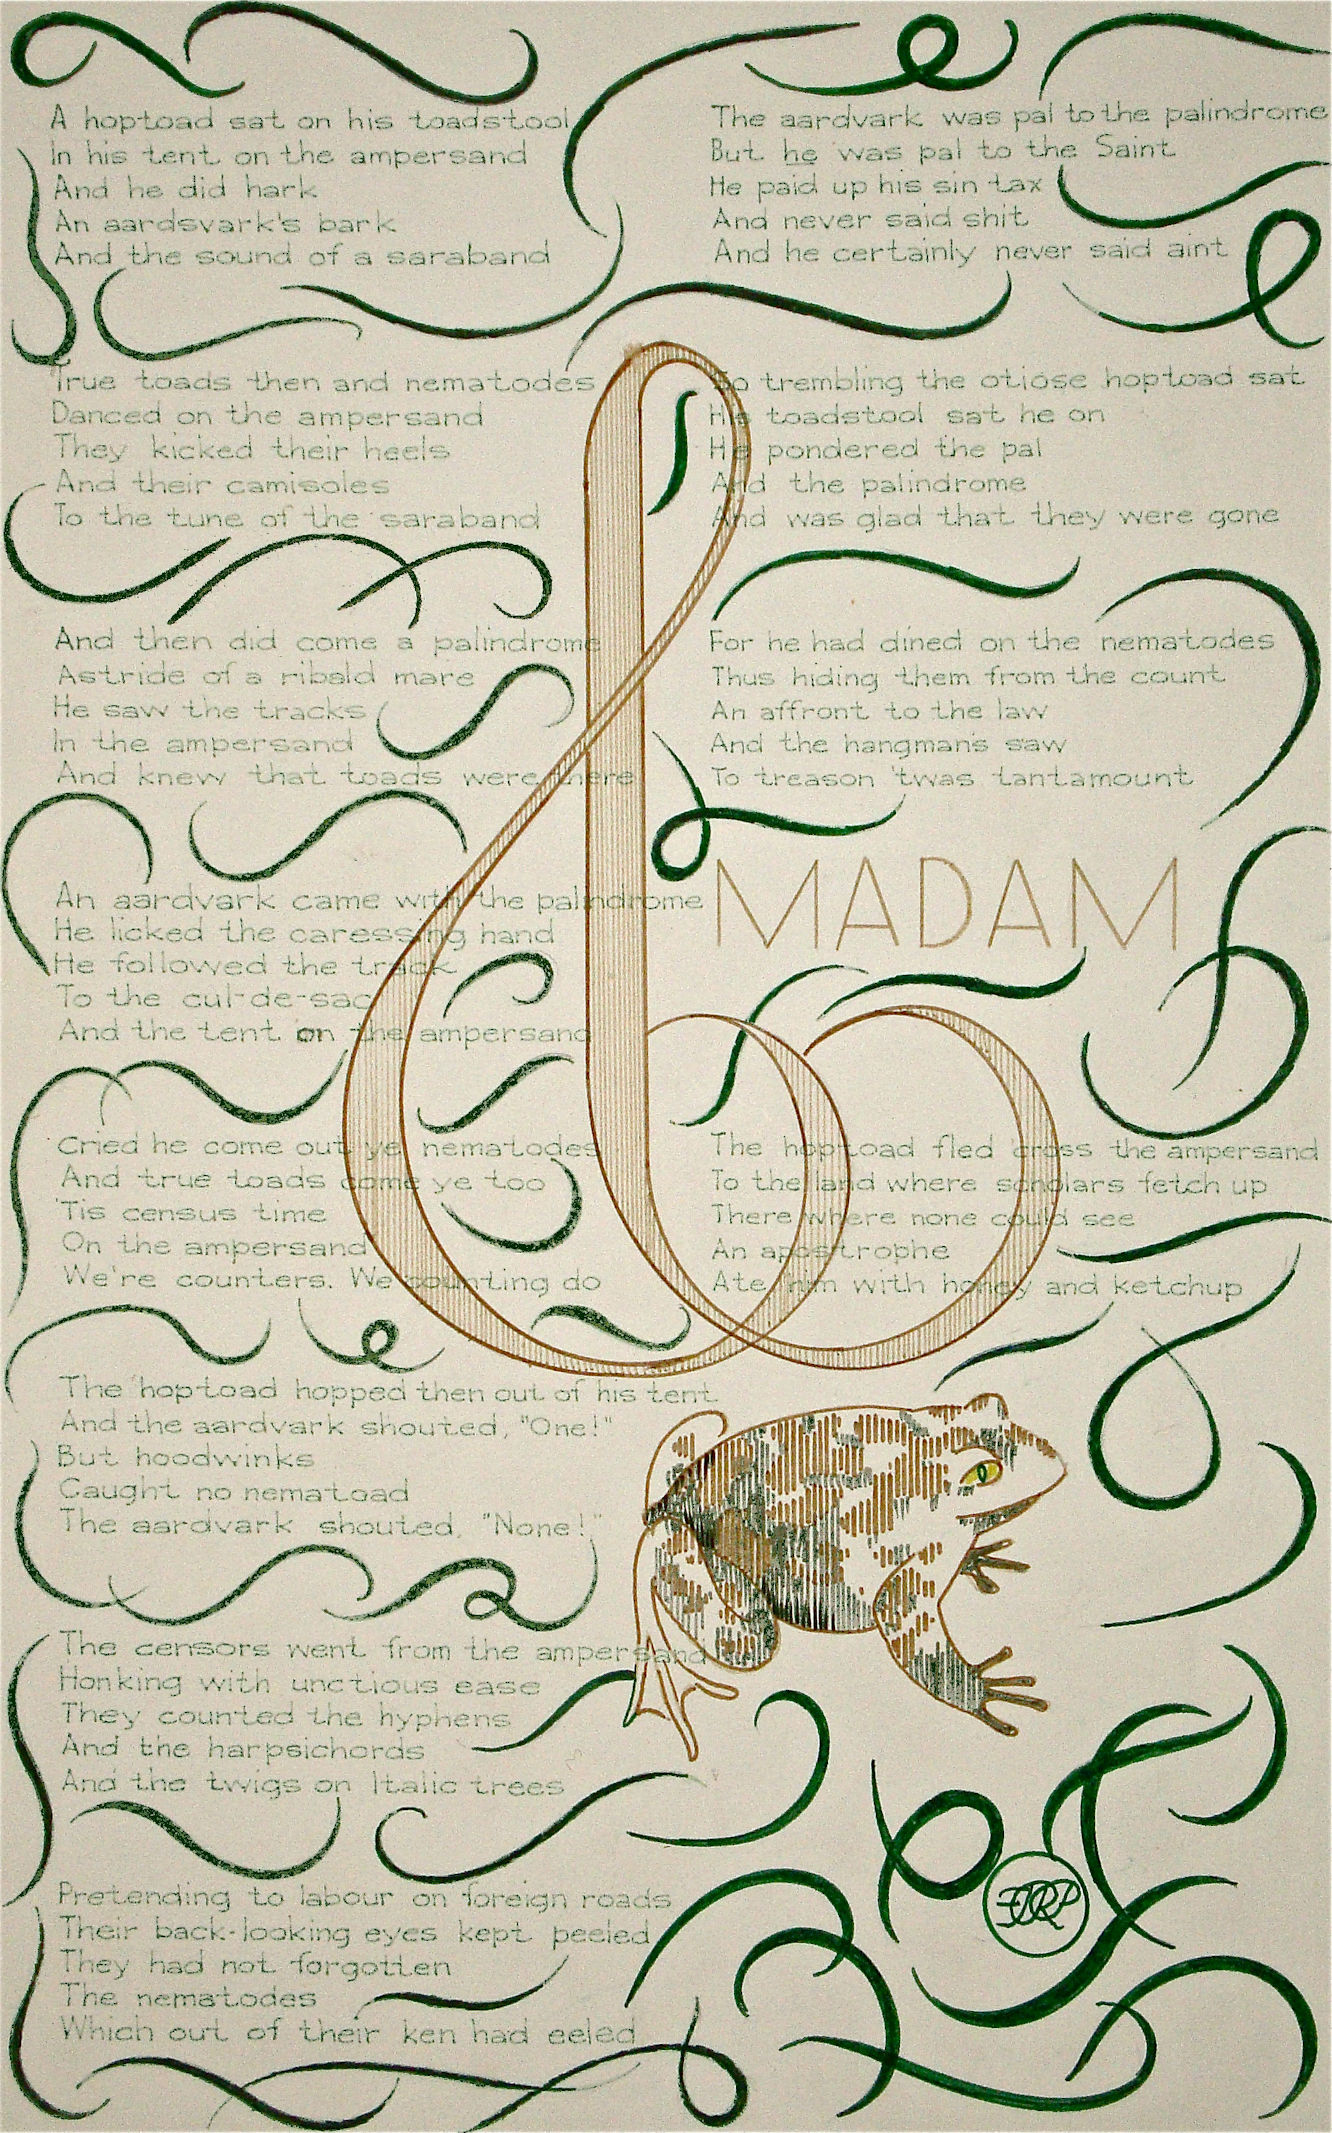 A hoptoad sat on his toadstool
In his tent on the ampersand
And he did hark
An aardsvark's bark
And the sound of a saraband
True toads then and nematodes
Danced on the ampersand
They kicked their heels
And their camisoles
To the tune of the saraband
And then did come a palindrome
Astride of a ribald mare
He saw the tracks
In the ampersand
And knew that toads were there
An aardvark came with the palindrome
He licked the caressing hand
He followed the track
To the cul-de-sac
And the tent on the ampersand
Cried he come out ye nematodes
And true toads come ye too
'Tis census time
On the ampersand
We're counters. We counting do
The hoptoad hopped then out of his tent
And the aardvark shouted, "One!"
But hoodwinks
Caught no nematoad
The aardvark shouted, "None!"
The censors went from the ampersand
Honking with unctious ease
They counted the hyphens
And the harpsichords
And the twigs on Italic trees
Pretending to labour on foreign roads
Their back-looking eyes kept peeled
They had not forgotten
The nematodes
Which out of their ken had eeled
The aardvark was pal to the palindrome
But he was pal to the Saint
He paid up his sin tax
And never said shit
And he certainly never said aint
So trembling the otiose hoptoad sat
His toadstool sat he on
He pondered the pal
And the palindrome
And was glad that they were gone
For he had dined on the nematodes
Thus hiding them from the count
An affront to the law
And the hangman's saw
To treason 'twas tantamount
MADAM
The hoptoad fled 'cross the ampersand
To the land where scholars fetch up
There where none could see
An apostrophe
Ate him with honey and ketchup